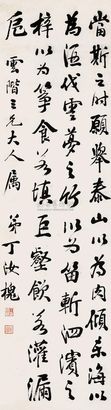 當斯之時願舉泰山以為肉傾東海以
為酒伐雲夢之竹以為笛斬泗濱之
梓以為箏食若填巨壑飲若灌漏
卮 雲階三兄大人屬 弟丁汝槐